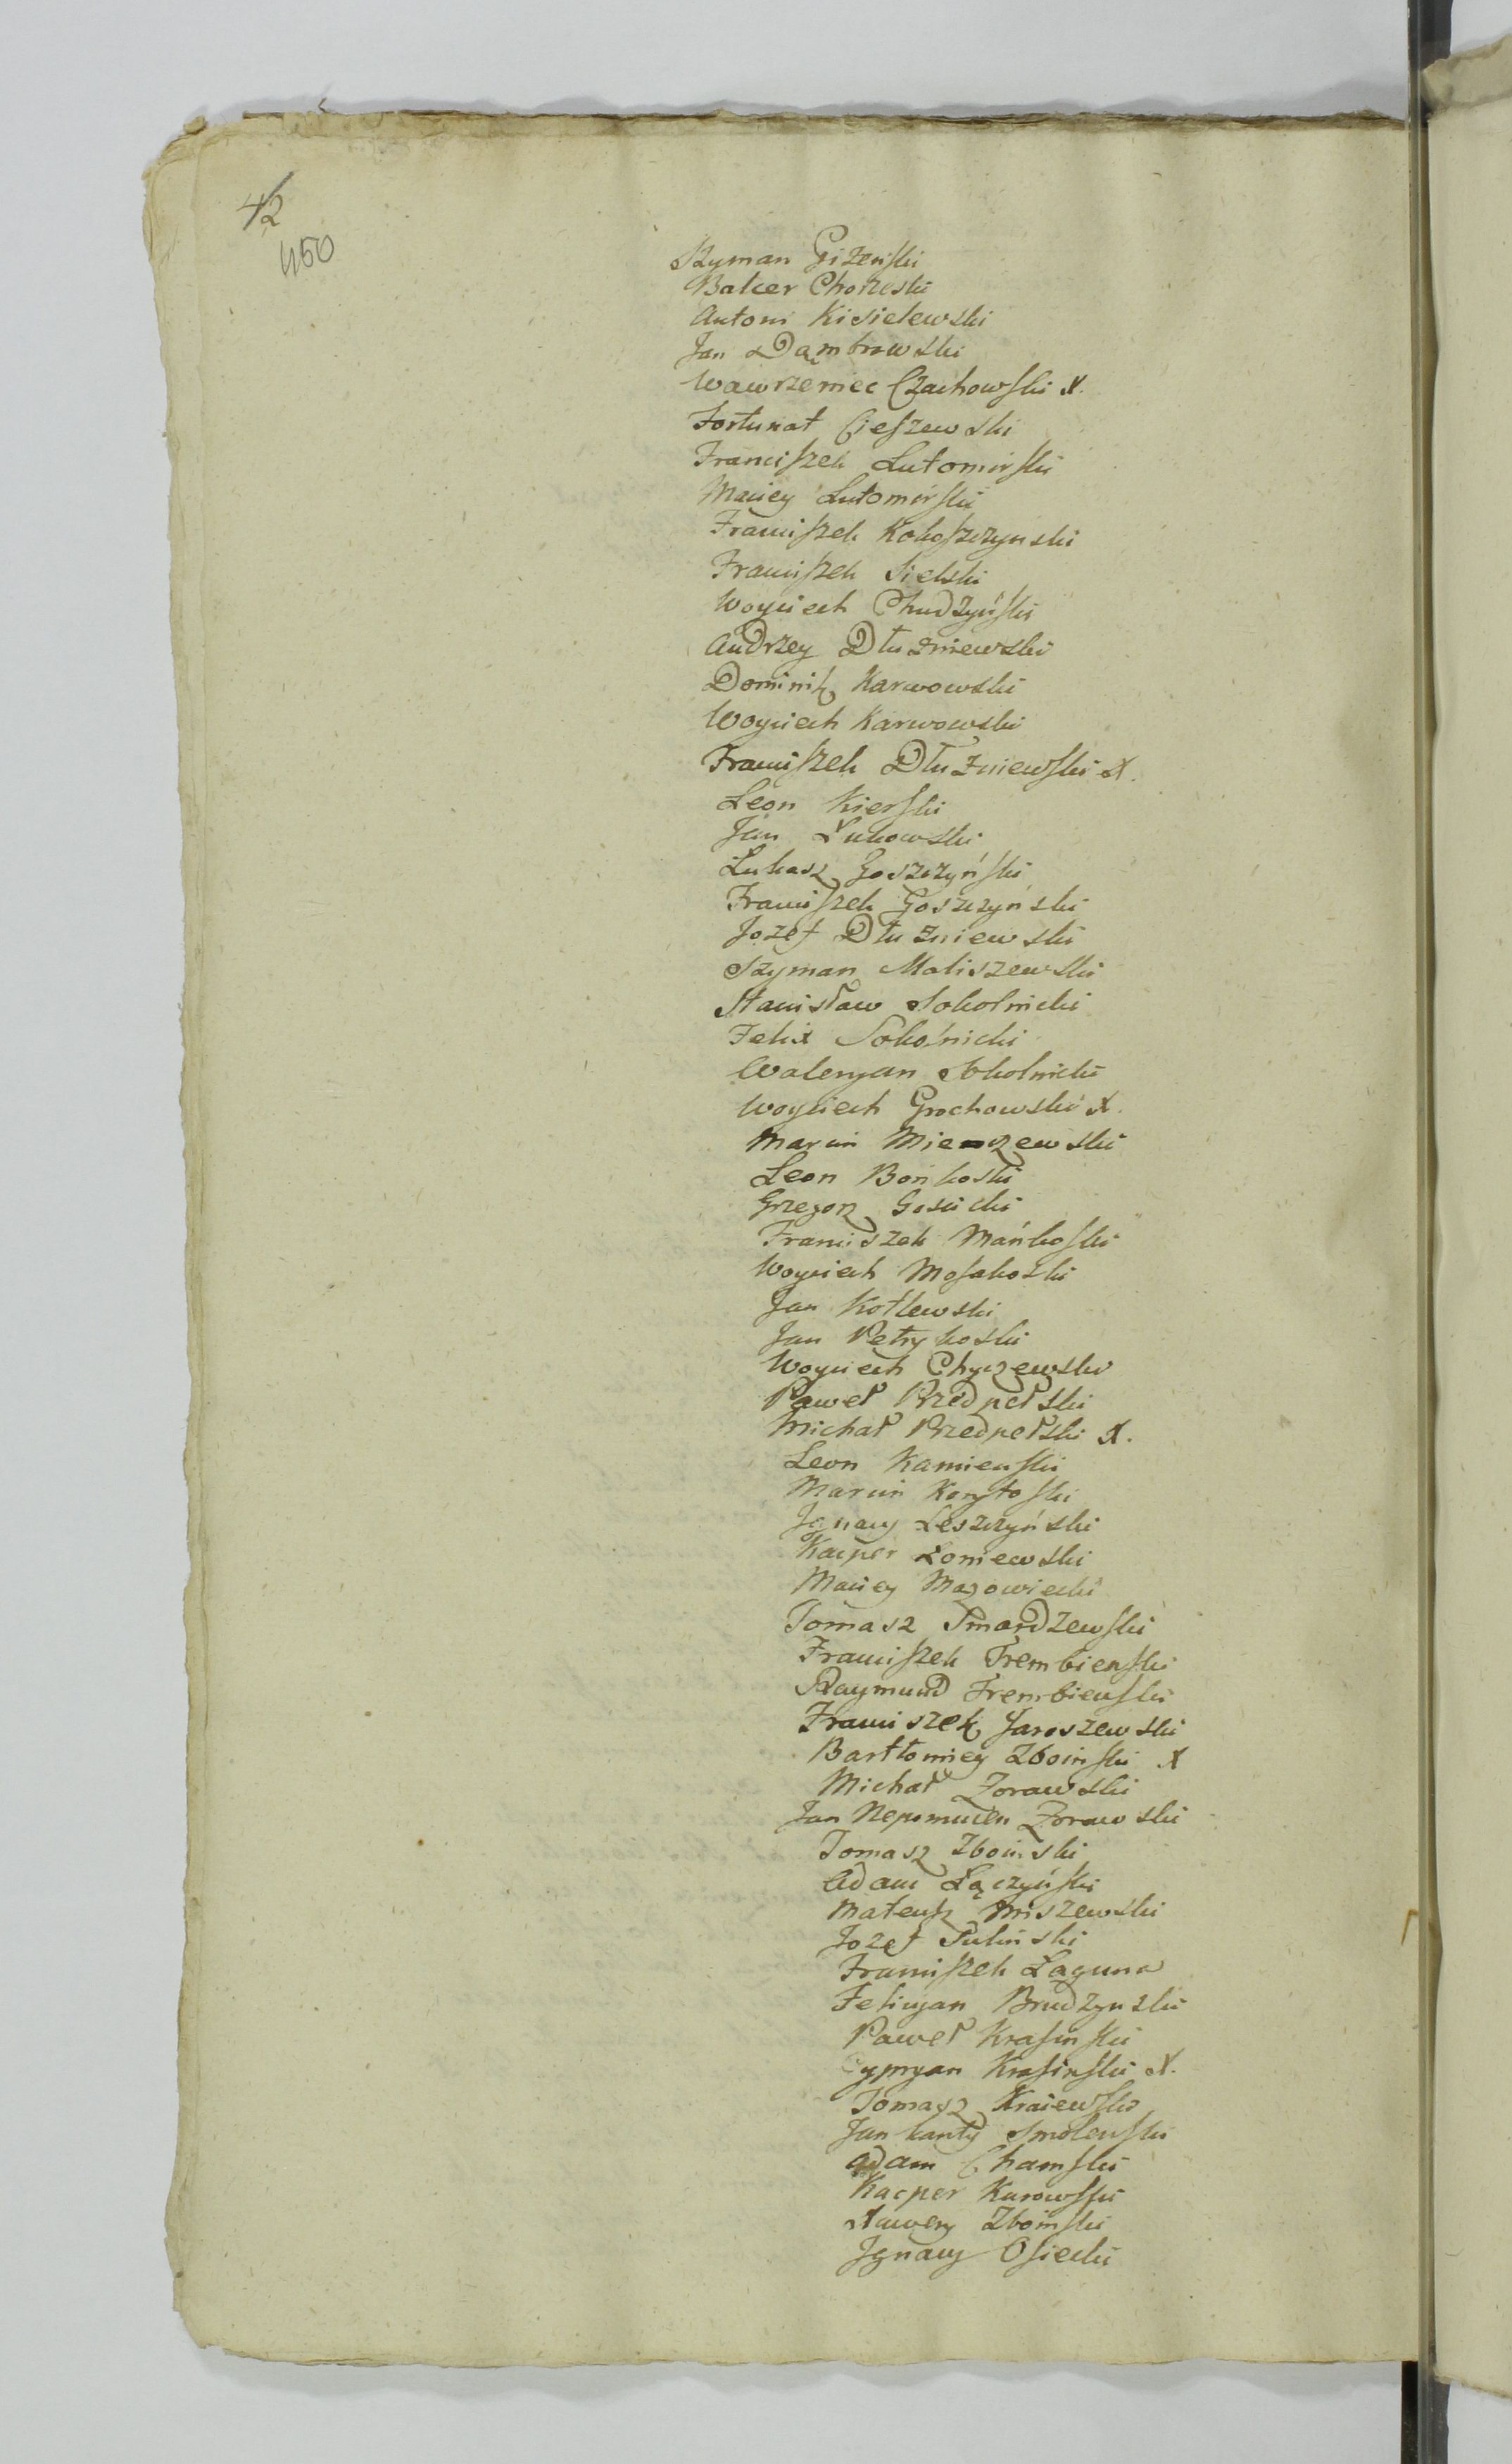 42
450
Szyman Giżeński
Balcer Choreski
Antoni Kisielewski
Jan Dąmbrowski
Wawrzeniec Czachowski X.
Fortunat Cieszewski
Franciszek Lutomirski
Maciey Lutomirski
Franciszek Kokoszczynski
Franciszek Sielski
Woyciech Chudzyński
Andrzey Dłużniewski
Dominik Karwowski
Woyciech Karwowski
Franciszek Dłużniewski X.
Leon Kierski
Jan Łukowski
Łukasz Goszczyński
Franciszek Goszczyński
Jozef Dłużniewski
Szyman Maliszewski
Stanisław Sokolnicki
Felix Sokolnicki
Waleryan Sokolnicki
Woyciech Grochowski X.
Marcin Mierzewski
Leon Bońkoski
Grzegorz Gosicki
Franciszek Mańkoski
Woyciech Mosakoski
Jan Kotlewski
Jan Petrykoski
Woyciech Chyczewski
Paweł Przedpełski
Michał Przedpełski X.
Leon Kamienski
Marcin Korytoski
Ignacy Leszczyński
Kacper Łoniewski
Maciey Mazowiecki
Tomasz Smardzewski
Franciszek Trembienski
Raymund Trembienski
Franciszek Jaroszewski
Bartłomiey Zboinski X
Michał Żorawski
Jan Nepomucen Żorawski
Tomasz Zboinski
Adam Łączyński
Mateusz Miszewski
Jozef Puliński
Franciszek Łaguna
Felicyan Brudzynski
Paweł Krasinski
Cypryan Krasinski X.
Tomasz Kraiewski
Jan Kanty Smolenski
Adam Chamski
Kacper Kurowski
Xawery Zboinski
Ignacy Osiecki